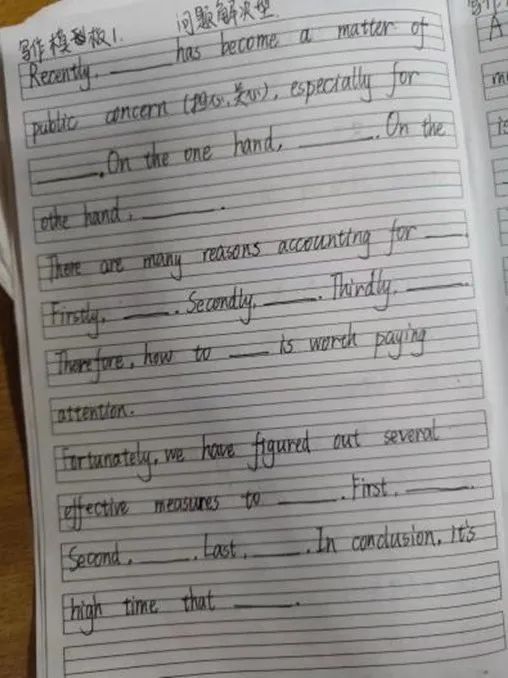 写作模板1. 问题解决型.
Recently, ______ has become a matter of
public concern (担心,关心), especially for
______. On the one hand, ______. On the
othe hand, ______.
There are many reasons accounting for ____.
Firstly, ____. Secondly, ____. Thirdly, ____.
Therefore, how to ____ is worth paying
attention.
Fortunately, we have figured out several
effective measures to ______. First, ______.
Second, ____. Last, ____. In conclusion, it's
high time that ____.